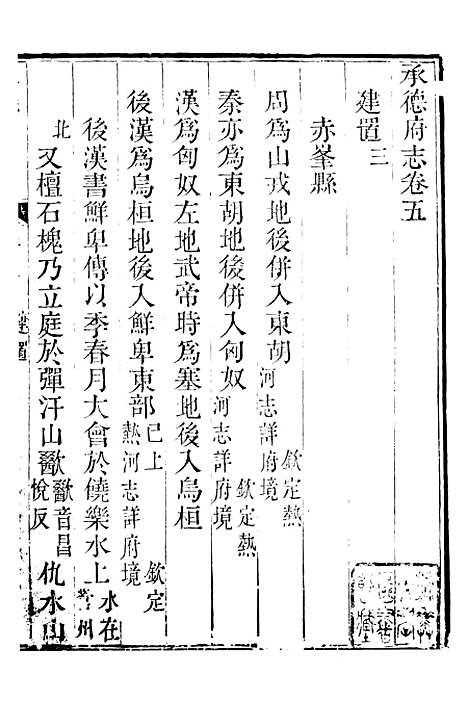 承德府志卷五
建置三
赤峯縣
周爲山戎地後併入東胡欽定熱河志詳府境
秦亦爲東胡地後併入匈奴欽定熱河志詳府境
漢爲匈奴左地武帝時爲塞地後入烏桓
後漢爲烏桓地後入鮮卑東部已上欽定熱河志詳府境
後漢書鮮卑傳以季春月大會於饒樂水上水在營州北
又檀石槐乃立庭於彈汗山歠歠音昌悅反仇水山
建置